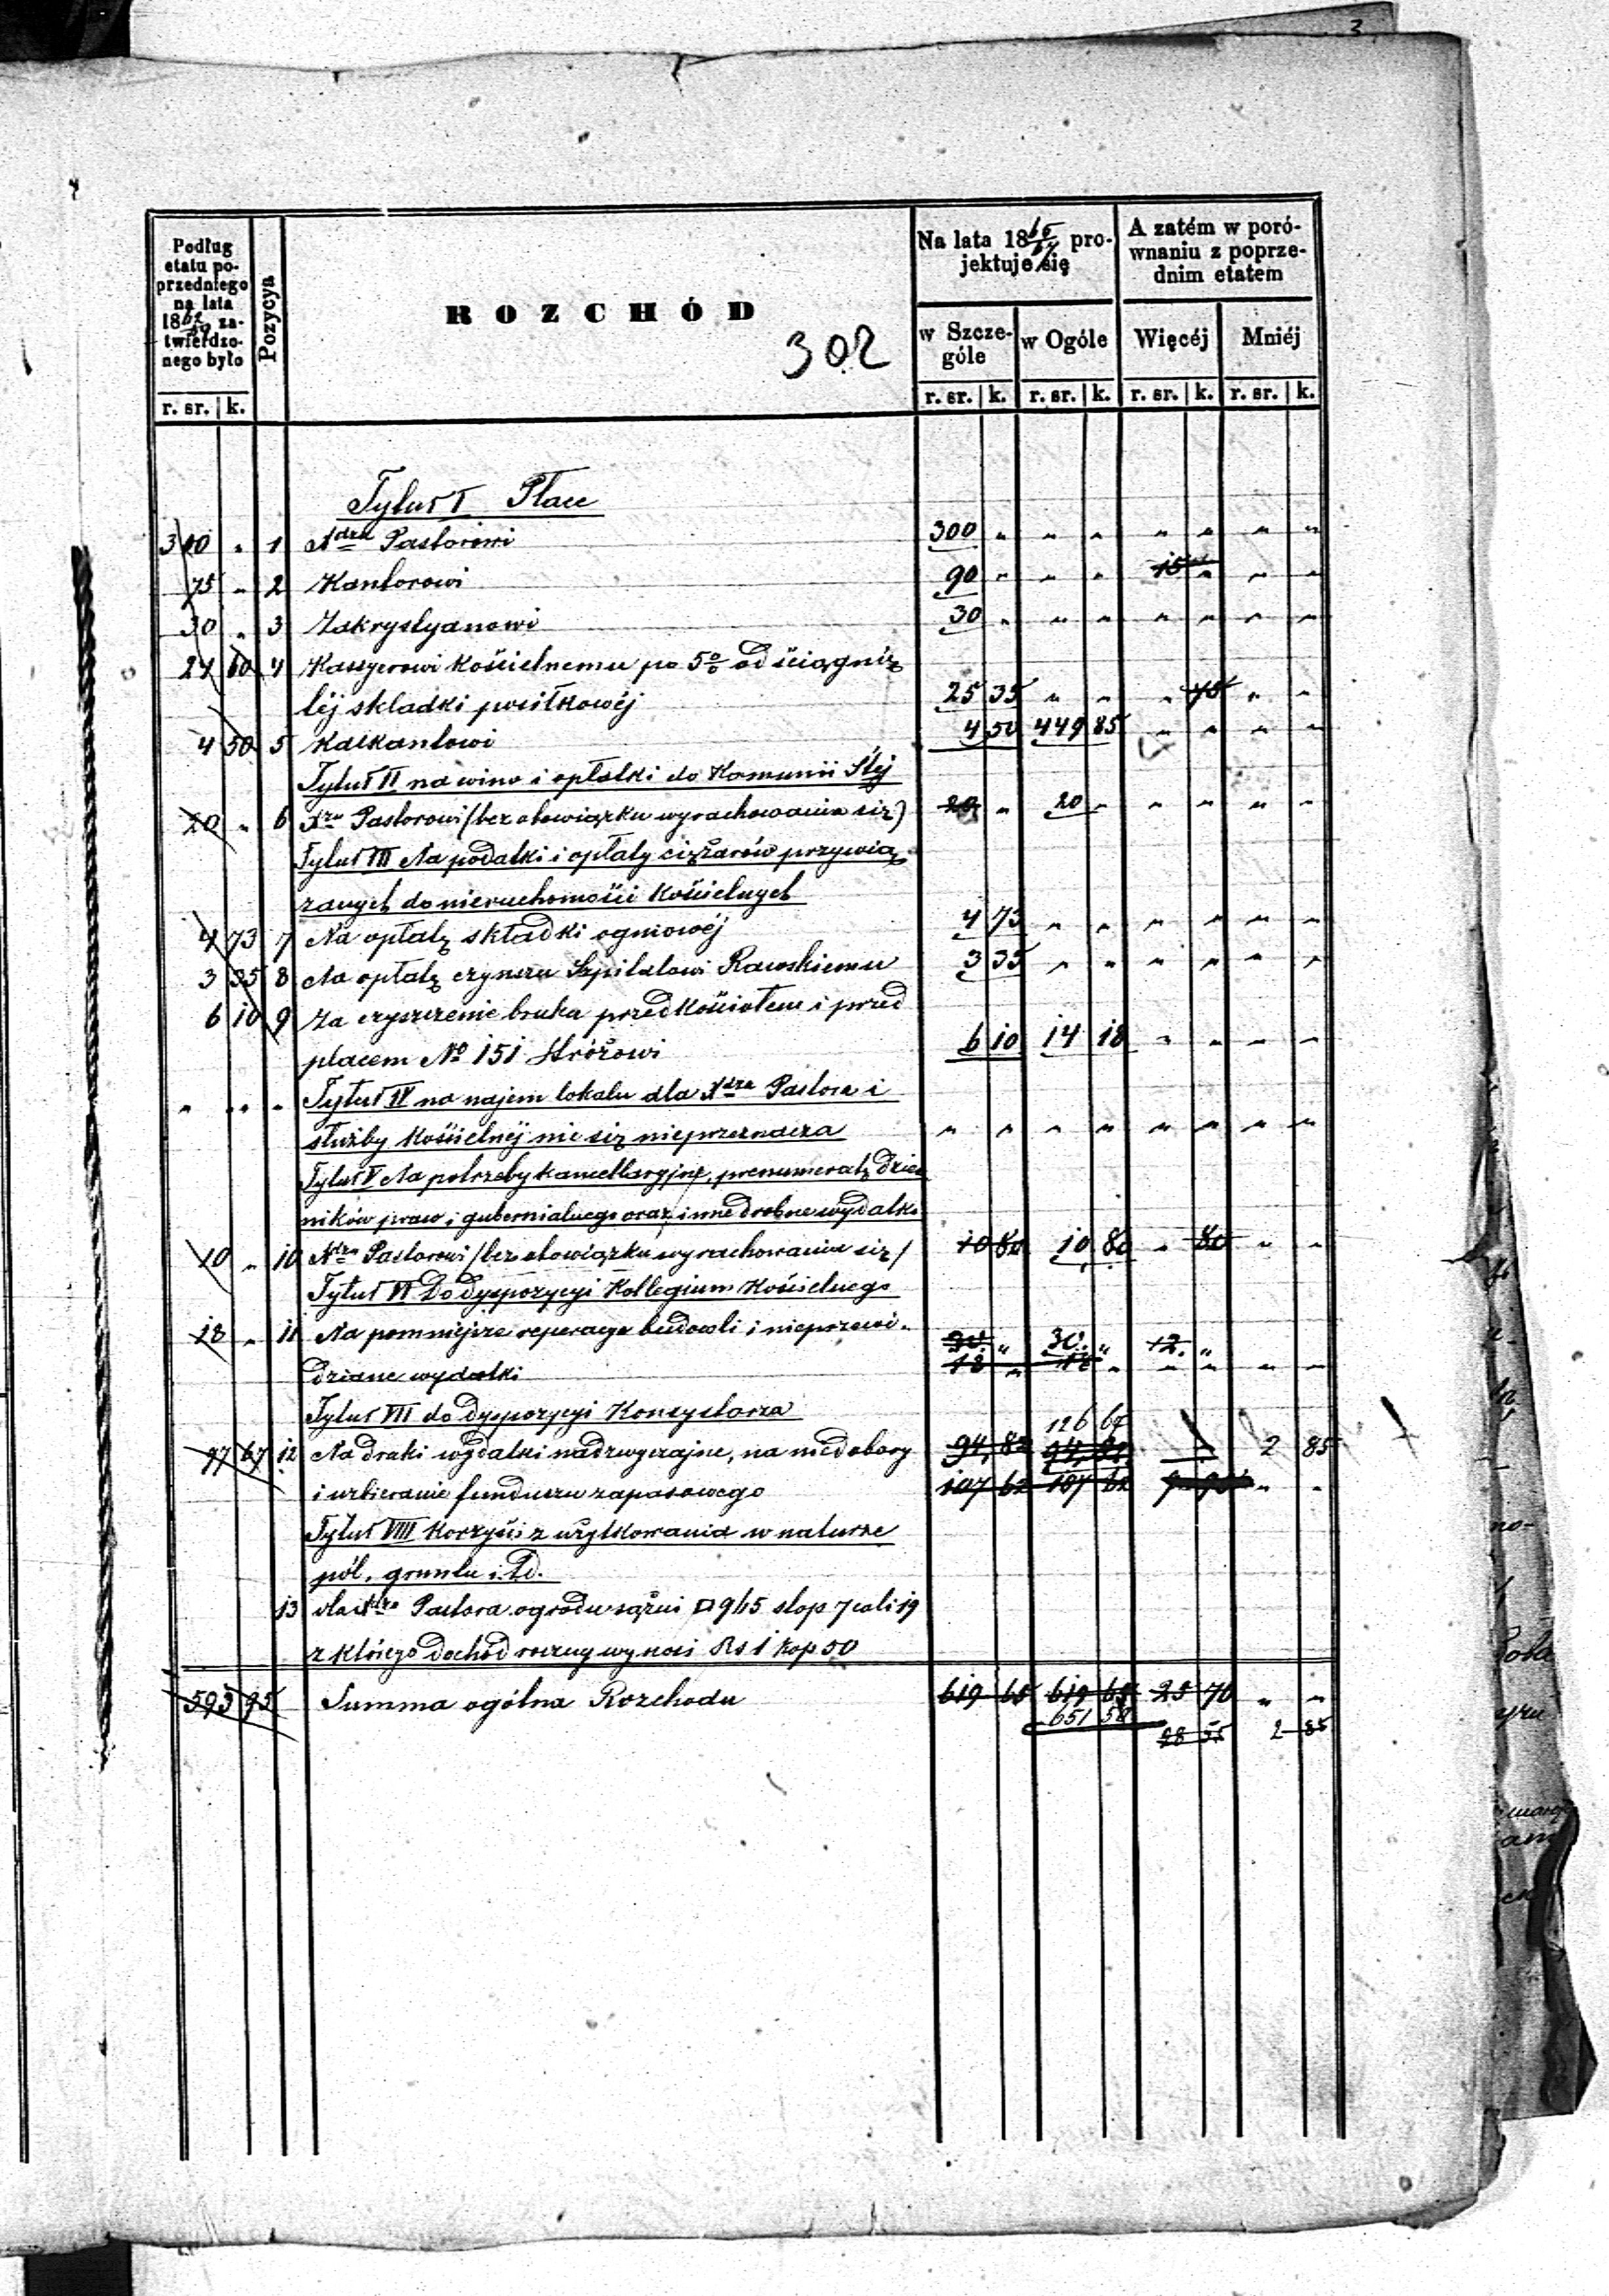 3
Podług
etatu po-
przedniego
na lata
18 62/64 za-
twierdzo-
nego było
Pozycya
ROZCHÓD
302
Na lata 18 65/67 pro-
jektuje się
A zatém w poró-
wnaniu z poprze-
dnim etatem
w Szcze-
góle
w Ogóle
Więcéj
Mniéj
r. sr. k. r. sr. k. r. sr. k. r. sr. k. r. sr. k.
Tytuł I Płace
300 " 1 Xdzu Pastorowi 300 " " " " " " "
75 " 2 Kantorowi 90 " " " 15 " " "
30 " 3 Zakrystyanowi 30 " " " " " " "
24 60 4 Kassyerowi Kościelnemu po 5% od ściągnię
téj składki posiłkowéj 25 35 " " " 75 " "
4 50 5 Kalkantowi 4 50 449 85 " " " "
Tytuł II na wino i opłatki do Kommunii Stéj
20 " 6 Xdzu Pastorowi (bez obowiązku wyrachowania się) 20 " 20 " " " " "
Tytuł III Na podatki i opłaty ciężarów przywią
zanych do nieruchomości Kościelnych
4 73 7 Na opłatę składki ogniowéj 4 73 " " " " " "
3 35 8 Na opłatę czynszu Szpitalowi Rawskiemu 3 35 " " " " " "
6 10 9 Za czyszczenie bruku przed Kościołem i przed
placem No 151 Stróżowi 6 10 14 18 " " " "
" " " " Tytuł IV na najem lokalu dla Xdza Pastora i
służby Kościelnéj nic się nieprzeznacza " " " " " " " "
Tytuł V Na potrzeby kancellaryjne, prenumeratę dzien
ników praw i gubernialnego oraz inne drobne wydatki
10 " 10 Xdzu Pastorowi (bez obowiązku wyrachowania się) 10 80 10 80 " 80 " "
Tytuł VI Do dyspozycyi Kollegium Kościelnego
18 " 11 Na pomniejsze reperacye budowli i nieprzewi-
30 " 30 " 12 "
dziane wydatki 18 " 18 " " " " "
Tytuł VII do dyspozycyi Konsystorza
126 67
97 67 12 Na druki wydatki nadzwyczajne, na niedobory 94 82 94 82 2 85
i uzbieranie funduszu zapasowego 107 62 107 62 9 95 " "
Tytuł VIII Korzyści z użytkowania w naturze
pól, gruntu i.t.d.
13 dla Xdza Pastora ogrodu sążni □ 965 stop 7 cali 19
z którego dochód roczny wynosi Rs 1 kop 50
593 95 Summa ogólna Rozchodu 619 65 619 65 25 70 " "
651 50
28 55 2 85